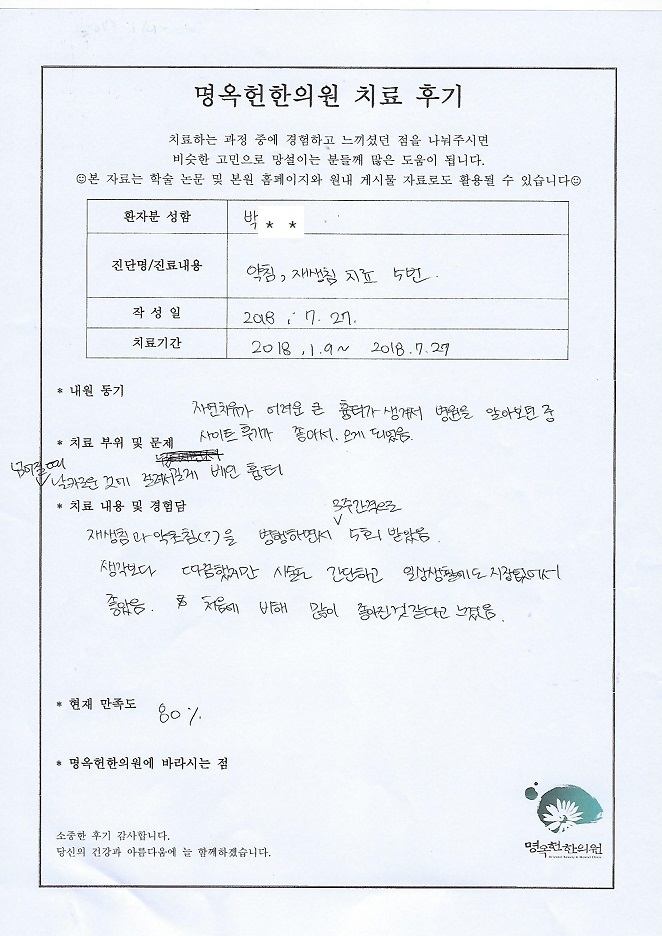 명옥헌한의원 치료 후기
치료하는 과정 중에 경험하고 느끼셨던 점을 나눠주시면
비슷한 고민으로 망설이는 분들께 많은 도움이 됩니다.
☺본 자료는 학술 논문 및 본원 홈페이지와 원내 게시물 자료로도 활용될 수 있습니다☺
환자분 성함 박 * *
진단명/진료내용 약침, 재생침 치료 5번.
작 성 일 2018. 7. 27.
치료기간 2018.1.9~ 2018.7.27
* 내원 동기
자연치유가 어려운 큰 흉터가 생겨서 병원을 알아보던 중
사이트 후기가 좋아서 오게 되었음.
* 치료 부위 및 문제
넘어질때
날카로운 것에 베인 흉터
* 치료 내용 및 경험담
3주간격으로
재생침과 약초침(?)을 병행하면서 5회 받았음.
생각보다 따끔했지만 시술도 간단하고 일상생활에도 지장없어서
좋았음. 처음에 비해 많이 좋아진것 같다고 느꼈음.
* 현재 만족도
80%
* 명옥헌한의원에 바라시는 점
소중한 후기 감사합니다.
당신의 건강과 아름다움에 늘 함께하겠습니다.
명옥헌한의원